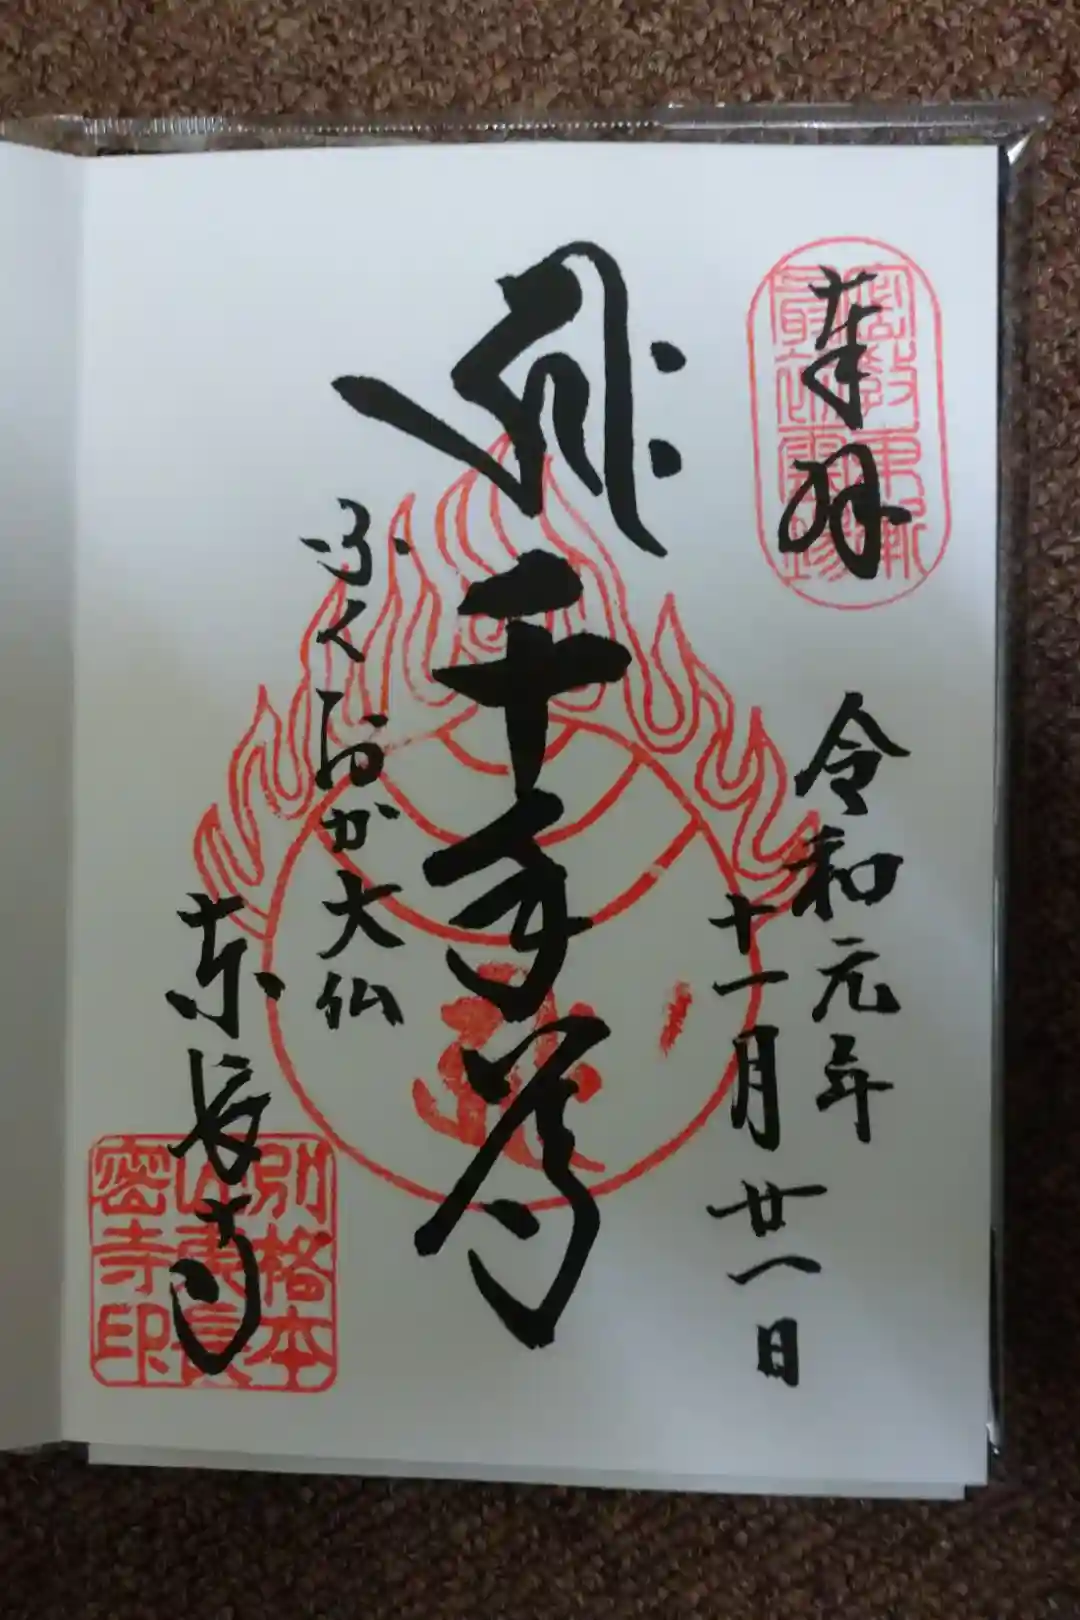 奉拝
密教東漸
最初霊場
令和元年
十一月廿一日
千手尊
ふくおか大仏
東長寺
別格本
山東長
密寺印